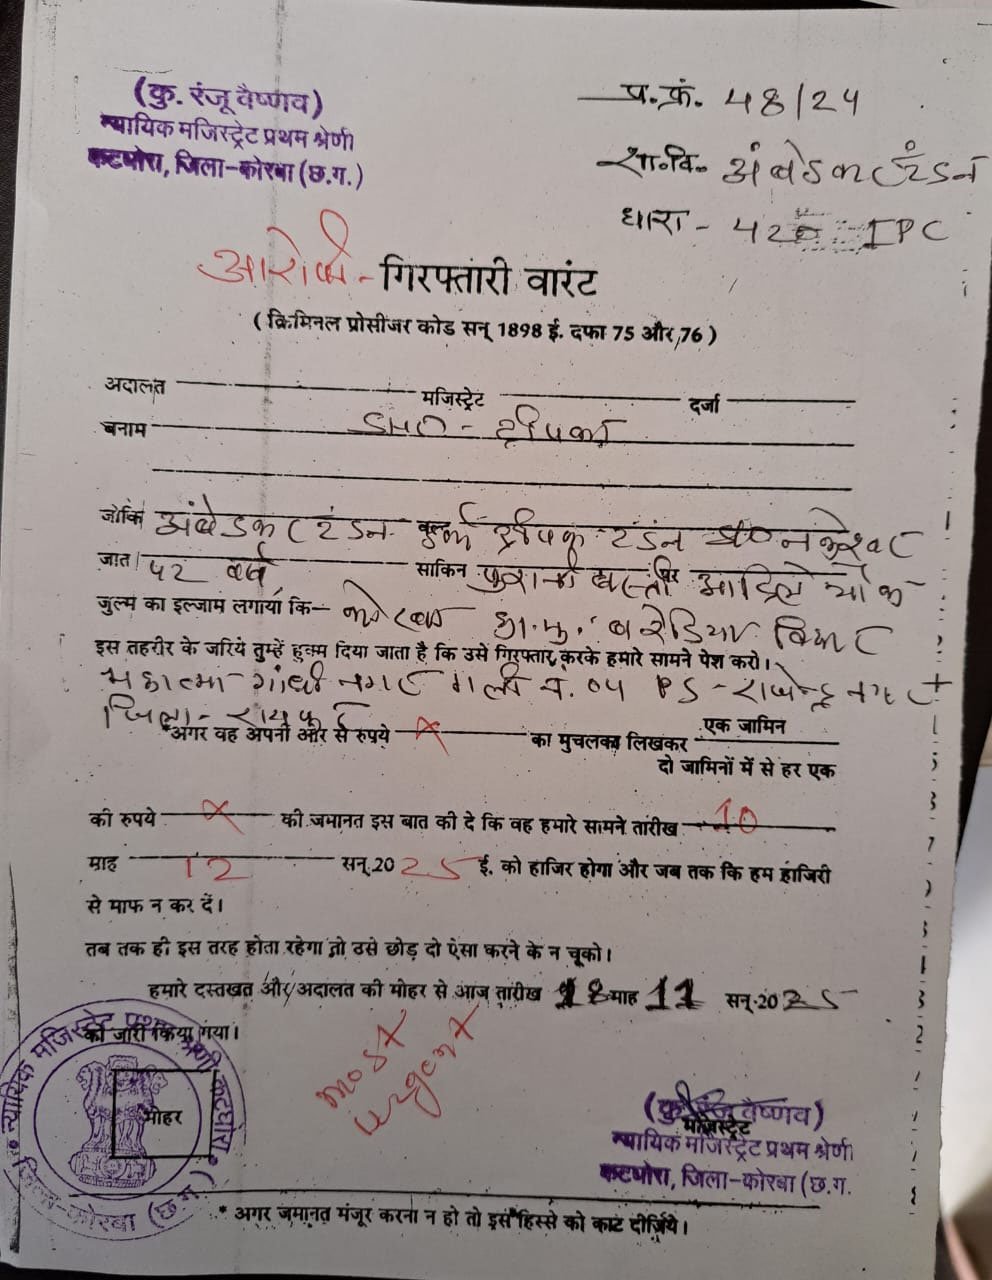 (कु. रंजू वैष्णव)
न्यायिक मजिस्ट्रेट प्रथम श्रेणी
कटघोरा, जिला-कोरबा (छ.ग.)
प्र.क्रं. 48/24
शा.वि. अंबेडकर टंडन
धारा - 420 IPC
आरोपी - गिरफ्तारी वारंट
( क्रिमिनल प्रोसीजर कोड सन् 1898 ई. दफा 75 और 76 )
अदालत मजिस्ट्रेट दर्जा
बनाम SHO - दीपका
जोकि अंबेडकर टंडन वल्द दीपक टंडन
जात 42 वर्ष साकिन पुरानी बस्ती आदिले चौक
जुल्म का इल्जाम लगाया कि- कोरबा हा.मु. बरेडिया विहार
इस तहरीर के जरिये तुम्हें हुक्म दिया जाता है कि उसे गिरफ्तार करके हमारे सामने पेश करो।
महात्मा गांधी नगर गली नं. 04 PS - राजेन्द्र नगर
जिला - रायपुर
*अगर वह अपनी ओर से रुपये X का मुचलका लिखकर एक जामिन
दो जामिनों में से हर एक
की रुपये X की जमानत इस बात की दे कि वह हमारे सामने तारीख 10
माह 12 सन् 2025 ई. को हाजिर होगा और जब तक कि हम हाजिरी
से माफ न कर दें।
तब तक ही इस तरह होता रहेगा तो उसे छोड़ दो ऐसा करने के न चूको।
हमारे दस्तखत और अदालत की मोहर से आज तारीख 18 माह 11 सन् 2025
को जारी किया गया।
most
urgent
मोहर
न्यायिक मजिस्ट्रेट प्रथम श्रेणी कटघोरा
जिला-कोरबा (छ.ग.)
(कु. रंजू वैष्णव)
मजिस्ट्रेट
न्यायिक मजिस्ट्रेट प्रथम श्रेणी
कटघोरा, जिला-कोरबा (छ.ग.
* अगर जमानत मंजूर करना न हो तो इस हिस्से को काट दीजिये।